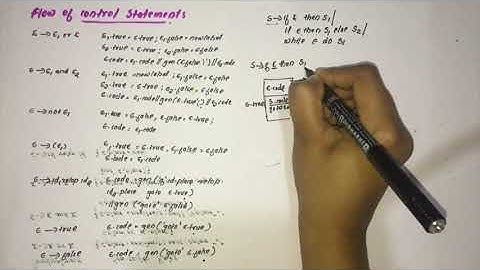 Flow of control Statements
E → E1 or E    E1.true = E.true; E1.false = newlabel
E2.true = E.true; E2.false = E.false
E.code = E1.code || gen(E1.false':') || E2.code
E → E1 and E2    E1.true = newlabel; E1.false = E.false
E2.true = E.true; E2.false = E.false
E.code = E1.code || gen(E.true':') || E2.code
E → not E1    E1.true = E.false, E1.false = E.true;
E.code = E1.code
E → (E1)    E1.true = E.true; E1.false = E.false
E.code = E1.code
E → id1 relop id2    E.code = gen('if' id.place relop
id2.place goto E.true)
|| gen('goto' E.false)
E → true    E.code = gen('goto' E.true)
E → false    E.code = gen('goto' E.false)
S → if E then S1 |
if E then S1 else S2 |
while E do S1
S → if E then S1
E.code
E.true
S.code